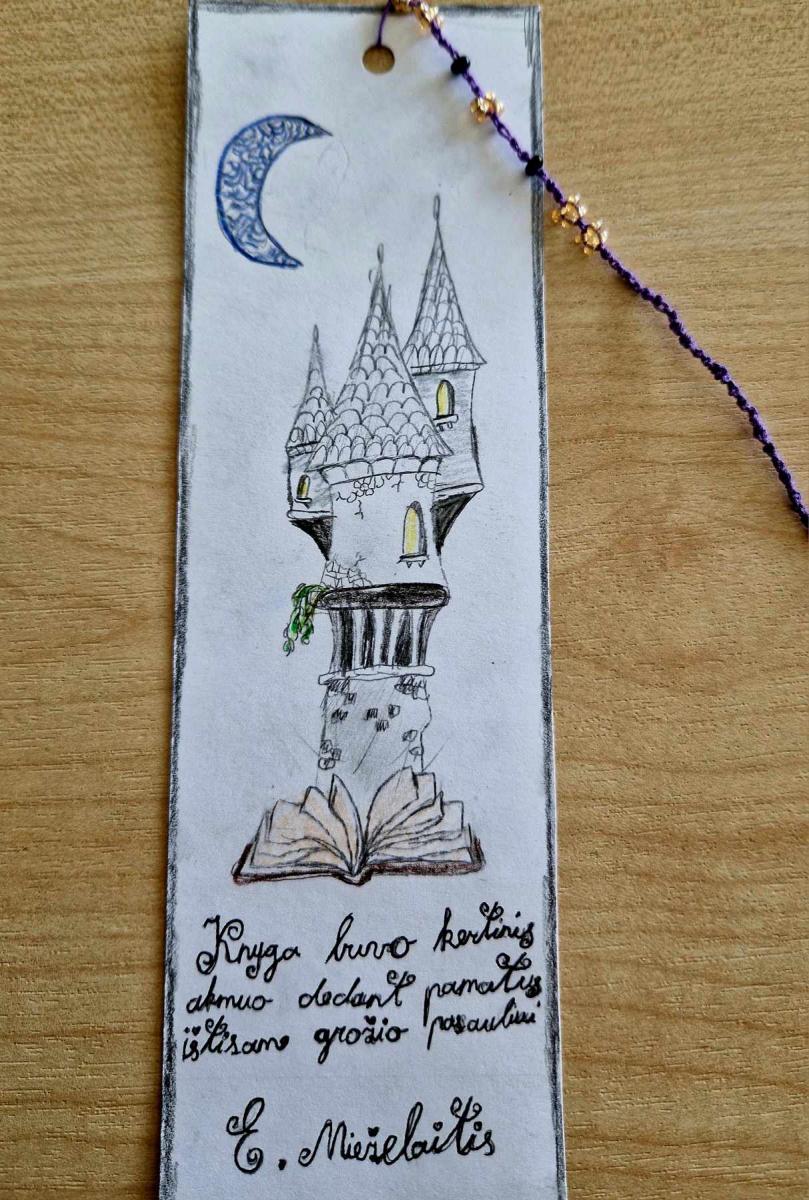 Knyga buvo kertinis
akmuo dedant pamatus
ištisam grožio pasauliui
E. Mieželaitis